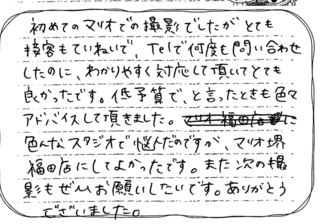 初めてのマリオでの撮影でしたがとても
接客もていねいで、Telで何度も問い合わせ
したのに、わかりやすく対応して頂いてとても
良かったです。低予算で、と言ったときも色々
アドバイスして頂きました。
色んなスタジオで悩んだのですが、マリオ堺
福田店にしてよかったです。また次の撮
影もぜひお願いしたいです。ありがとう
ございました。